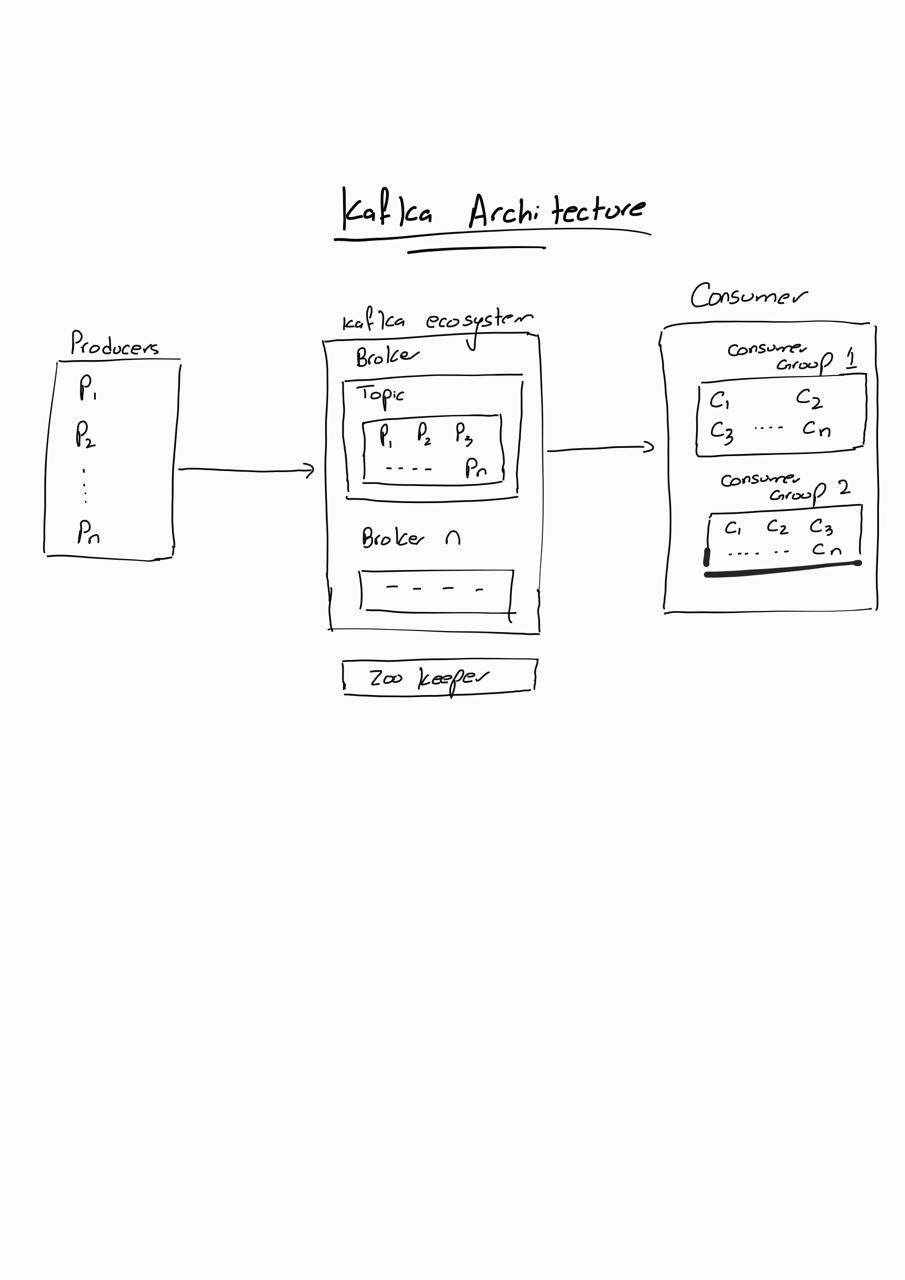 Kafka Architecture
Producers
P1
P2
Pn
Kafka ecosystem
Broker
Topic
P1 P2 P3
---- Pn
Broker n
- - - -
Zoo keeper
Consumer
Consumer
Group 1
C1 C2
C3 .... Cn
Consumer
Group 2
C1 C2 C3
.... .. Cn